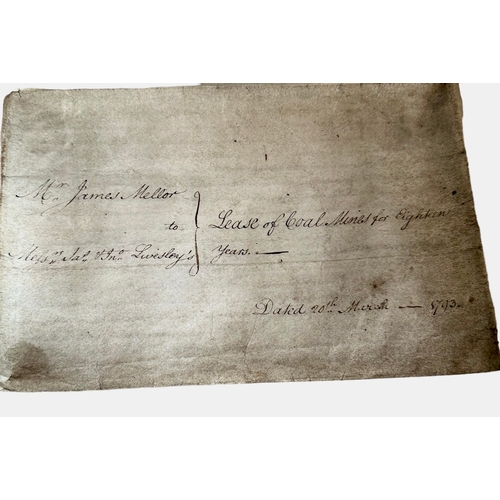 Mr. James Mellor
to
Messrs. Jas. & Jno. Livesley's
Lease of Coal Mines for Eighteen
Years.—
Dated 20th. March — 1793.